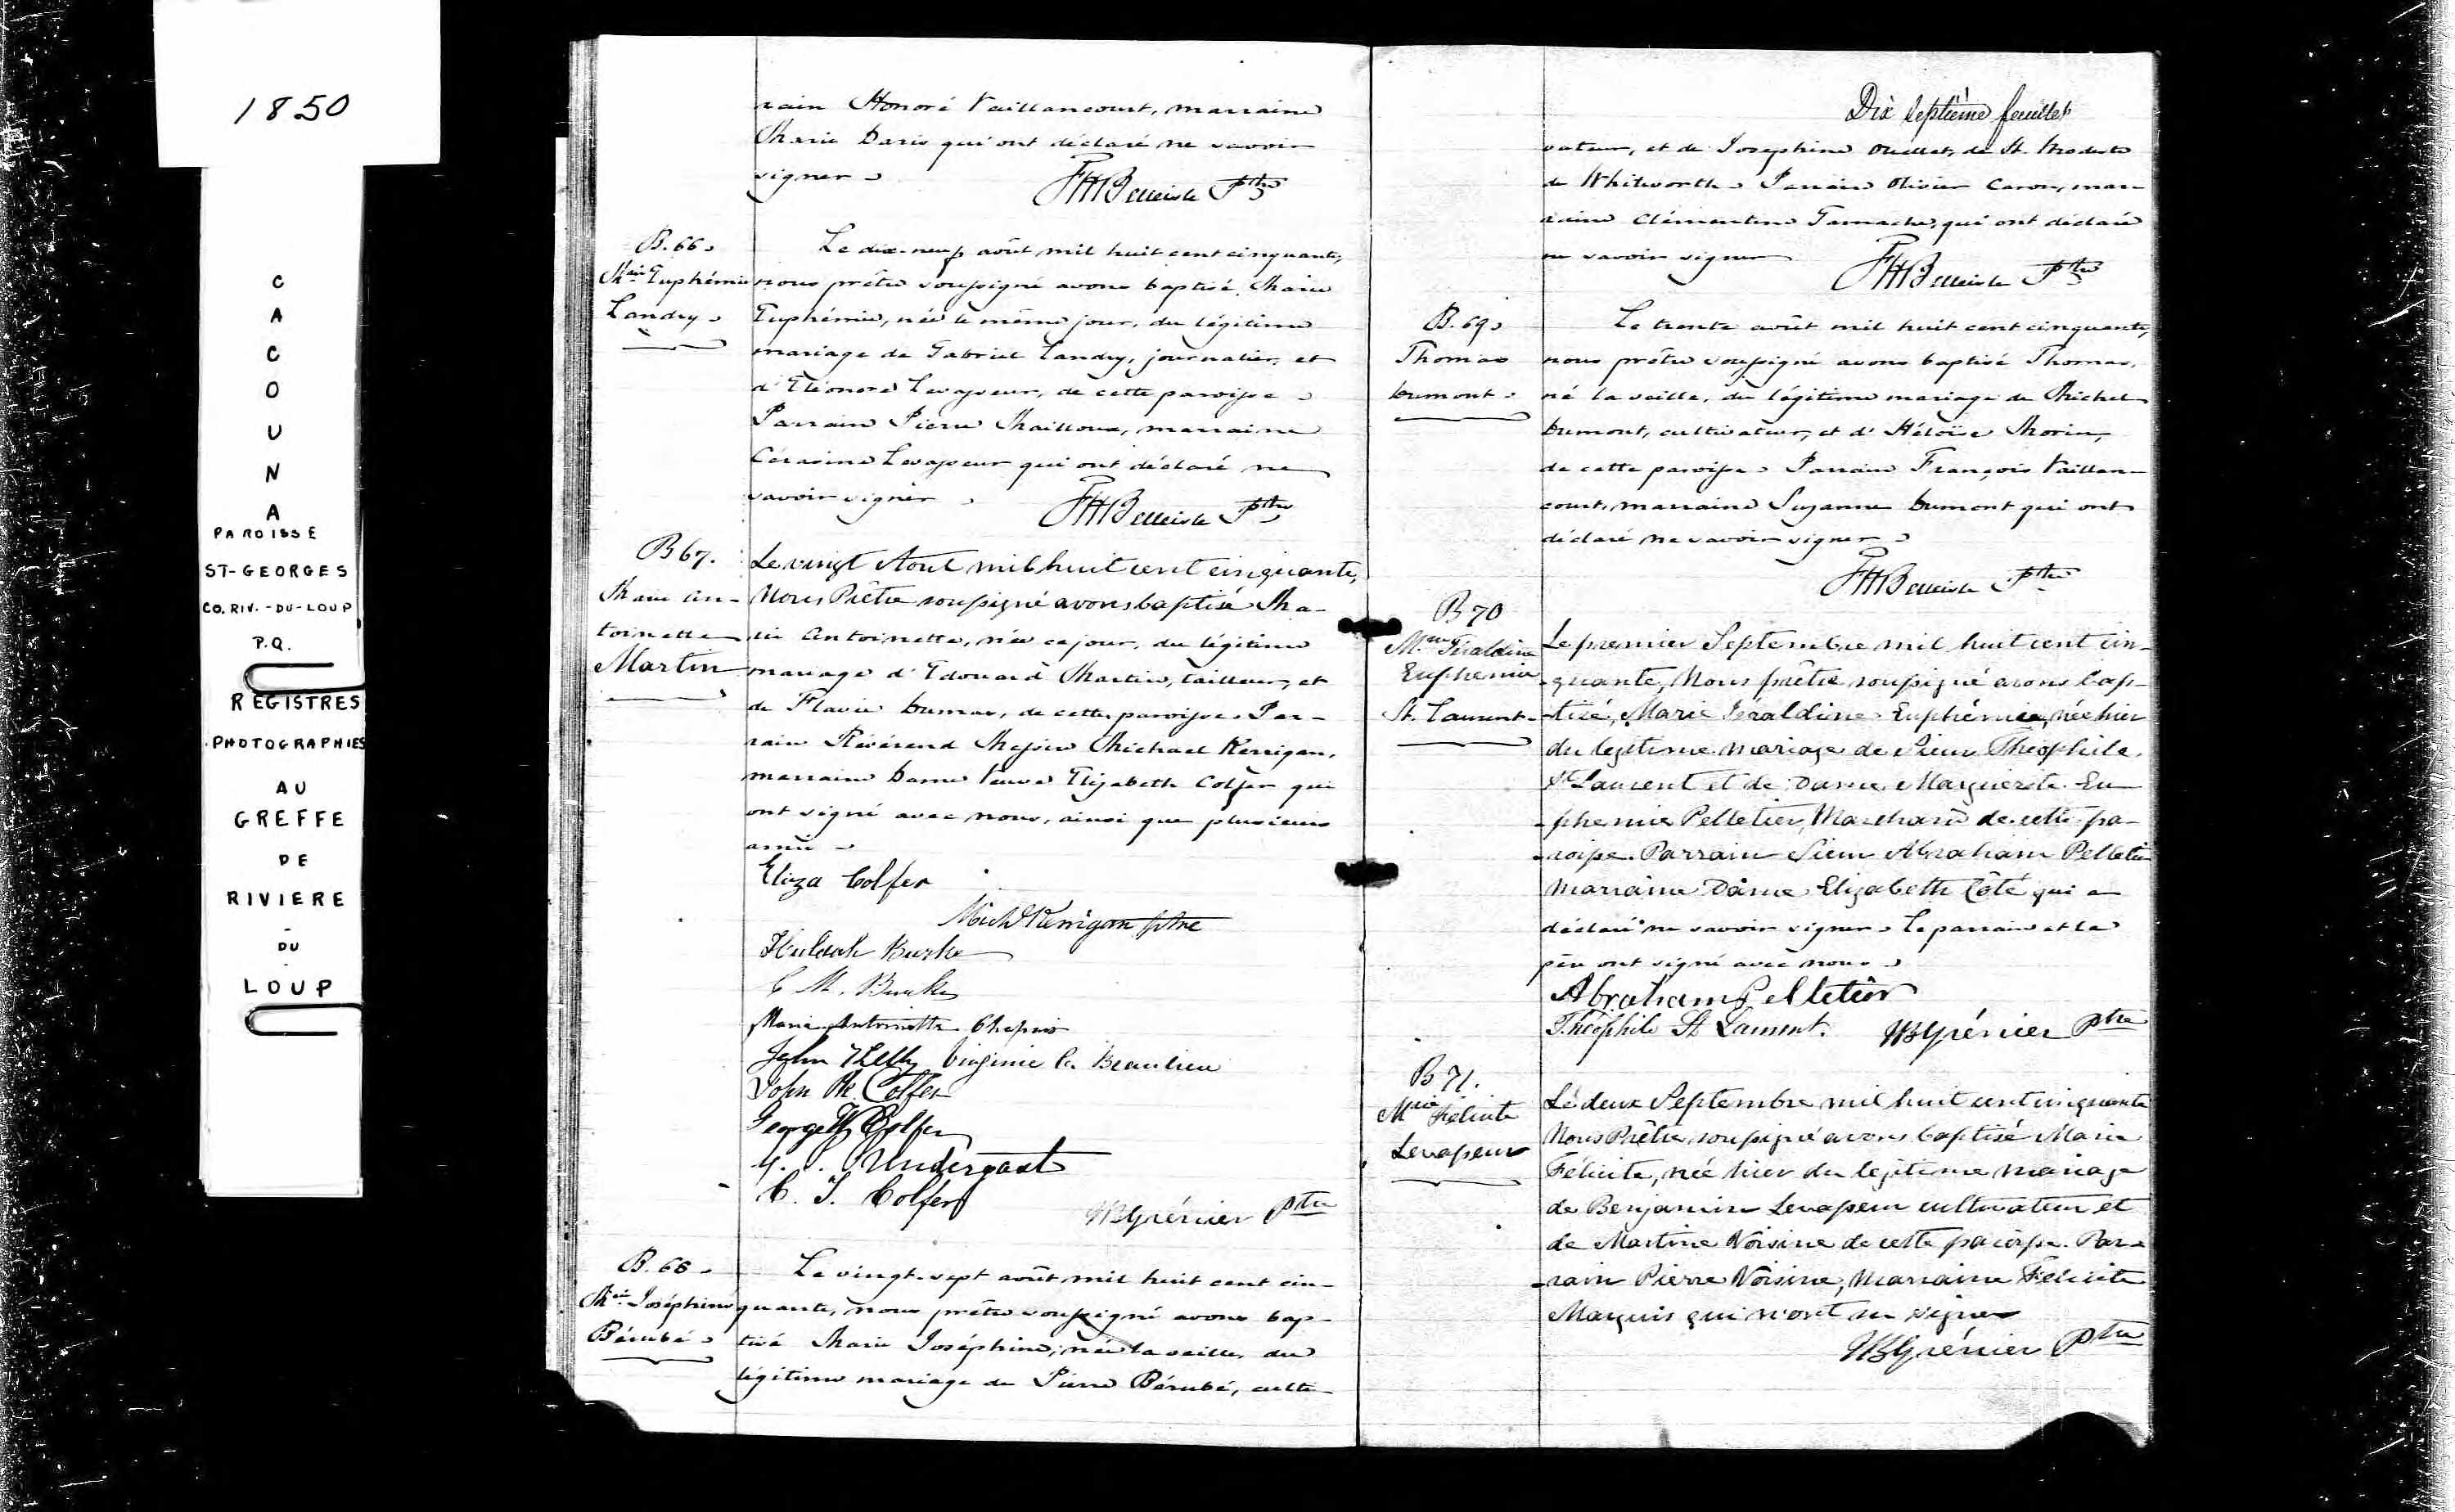 1850
C
A
C
O
U
N
A
PAROISSE
ST-GEORGES
CO. RIV.-DU-LOUP
P.Q.
REGISTRES
PHOTOGRAPHIES
AU
GREFFE
DE
RIVIERE
-
DU
-
LOUP
rain Honoré Vaillancourt, marraine
Marie Paris qui ont déclaré ne savoir
signer
FHBelleisle Ptre
B. 66.
Mie Euphémie
Landry
Le dix-neuf août mil huit cent cinquante,
nous prêtre soussigné avons baptisé Marie
Euphémie, née le même jour, du légitime
mariage de Gabriel Landry, journalier, et
d'Eléonore Levasseur, de cette paroisse
Parrain Pierre Mailloux, marraine
Césarine Levasseur qui ont déclaré ne
savoir signer
FHBelleisle Ptre
B 67.
Marie An-
toinette
Martin
Le vingt Aout mil huit cent cinquante,
Nous Prêtre soussigné avons baptisé Ma-
rie Antoinette, née ce jour, du légitime
mariage d'Edouard Martin, tailleur, et
de Flavie Dumas, de cette paroisse. Par-
rain Révérend Messire Michael Kerrigan,
marraine Dame Veuve Elizabeth Colfer qui
ont signé avec nous, ainsi que plusieurs
amis
Eliza Colfer
Michl Kerrigan ptre
Huldah Burke
C M. Burke
Marie Antoinette
John Kelly Virginie C. Beaulieu
John Colfer
George Colfer
C. J. Colfer
Grénier Ptre
B. 68
Mie Joséphine
Bérubé
Le vingt-sept août mil huit cent cin-
quante, nous prêtre soussigné avons bap-
tisé Marie Joséphine, née la veille, du
légitime mariage de Pierre Bérubé, culti-
Dix septième feuillet
vateur, et de Josephine Ouellet, de St. Modeste
de Whitworth. Parrain Olivier Caron, mar-
raine Clémentine Gamache, qui ont déclaré
ne savoir signer
FHBelleisle Ptre
B. 69.
Thomas
Dumont.
Le trente août mil huit cent cinquante,
nous prêtre soussigné avons baptisé Thomas,
né la veille, du légitime mariage de Michel
Dumont, cultivateur, et d'Héloïse Morin,
de cette paroisse. Parrain François Vaillan-
court, marraine Suzanne Dumont qui ont
déclaré ne savoir signer
FHBelleisle Ptre
B 70
Mie Géraldine
Euphémie
St. Laurent
Le premier Septembre mil huit cent cin-
-quante, Nous prêtre soussigné avons bap-
-tisé, Marie Géraldine Euphémie, née hier
du legitime mariage de Sieur Théophile
St Laurent et de Dame Marguerite Eu-
-phemie Pelletier, Marchand de cette pa-
-roisse. Parrain Sieur Abraham Pelletier
Marraine Dame Elizabeth Côté qui a
déclaré ne savoir signer. Le parrain et le
père ont signé avec nous
Abraham Pelletier
Théophile St Laurent. Grénier Ptre
B 71.
Mie Félicité
Levasseur
Le deux Septembre mil huit cent cinquante
Nous Prêtre soussigné avons baptisé Marie
Félicité, née hier du legitime mariage
de Benjamin Levasseur cultivateur et
de Martine Voisine de cette paroisse. Par-
-rain Pierre Voisine, Marraine Félicité
Marquis qui n'ont su signer
Grénier Ptre